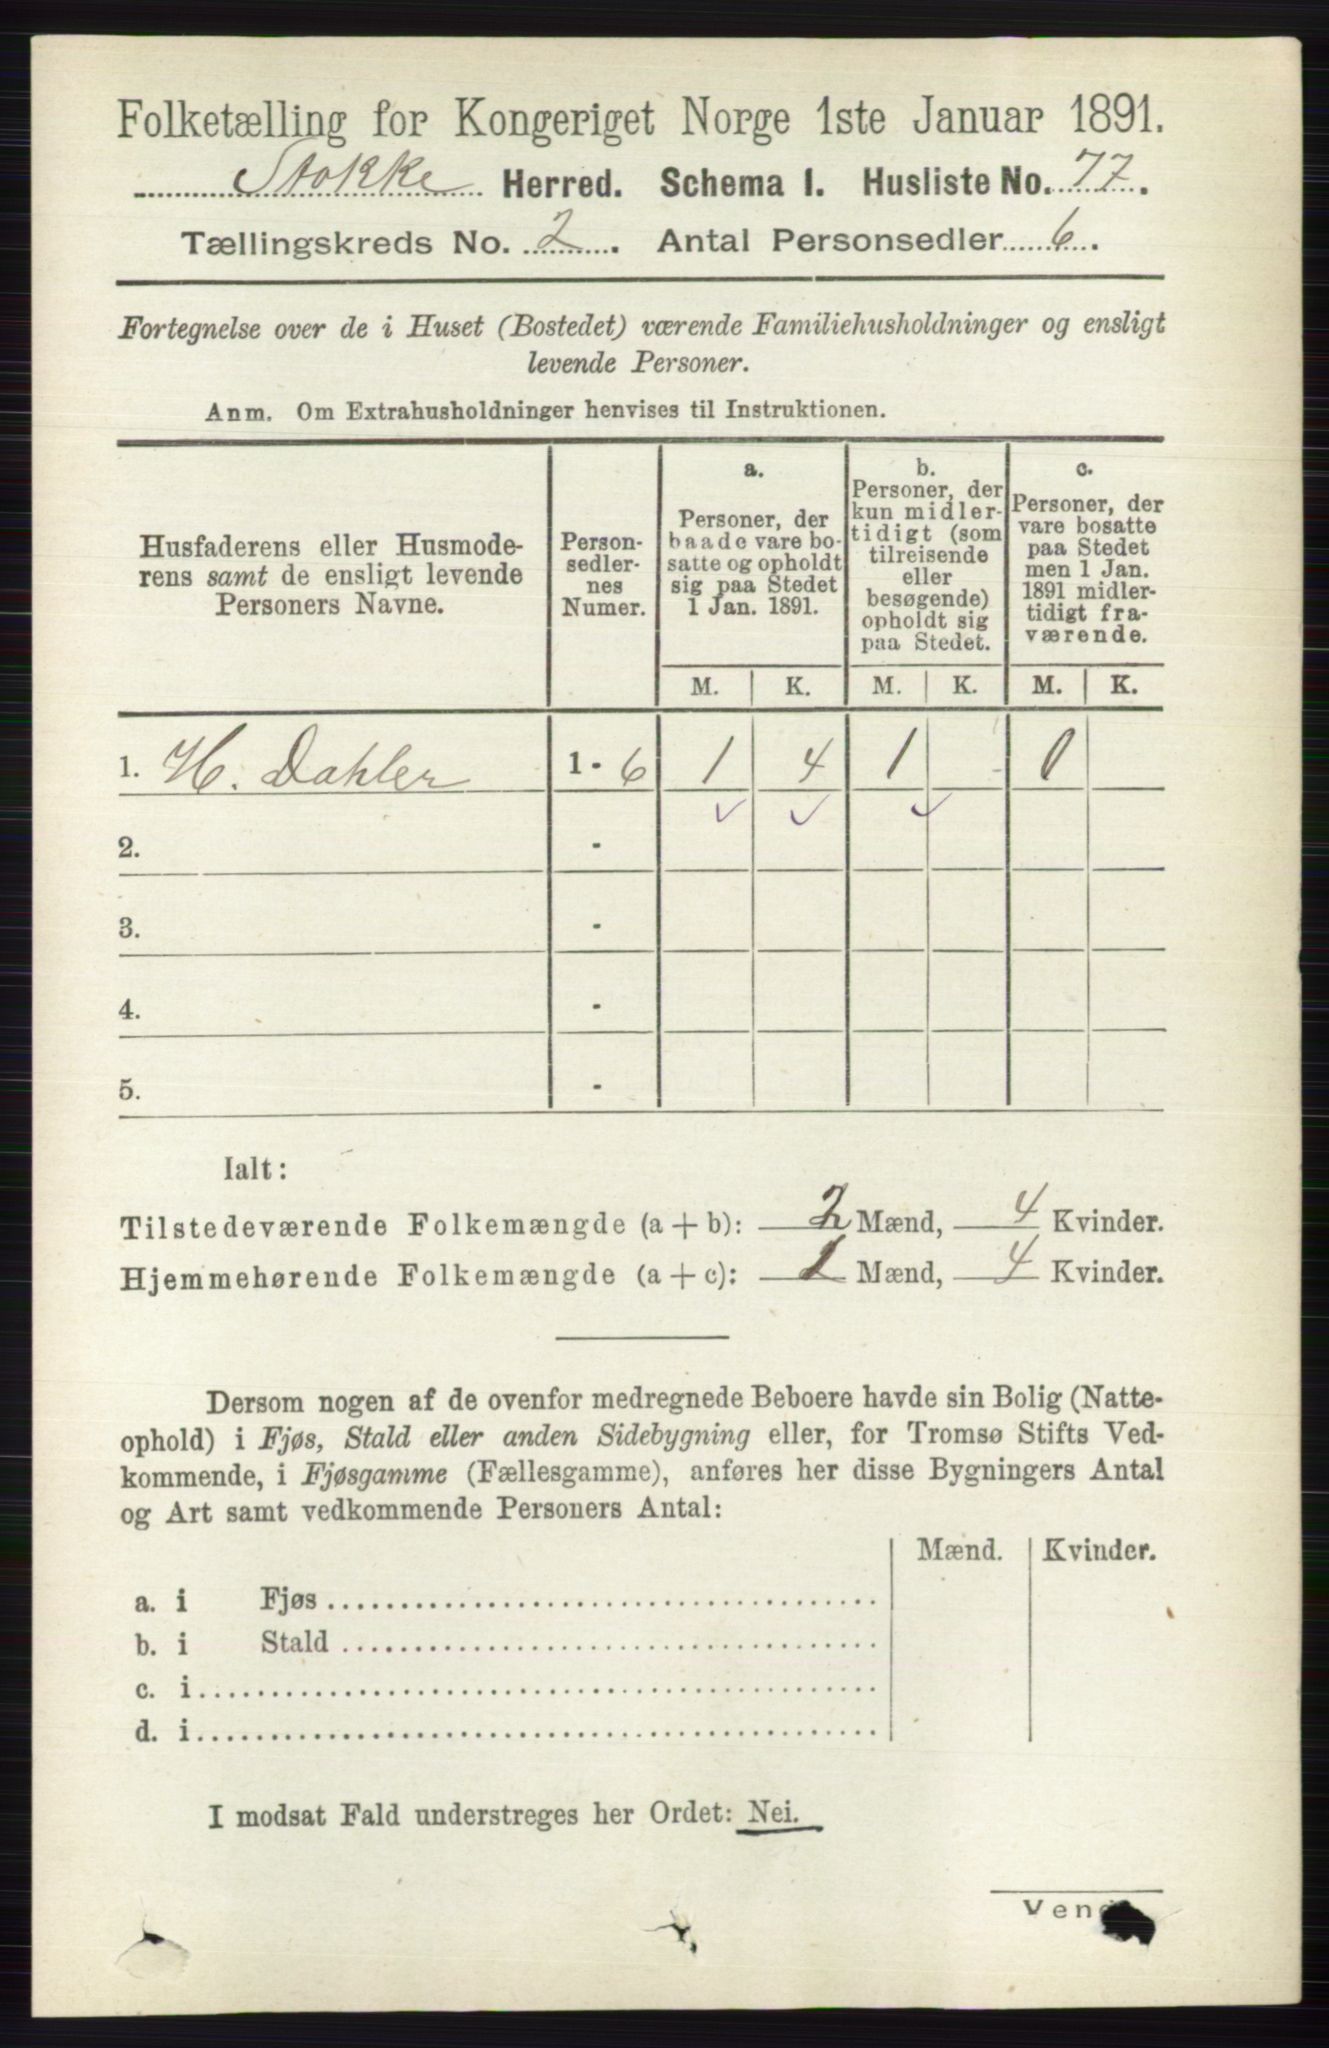 Folketælling for Kongeriget Norge 1ste Januar 1891.
Stokke Herred. Schema I. Husliste No. 77.
Tællingskreds No. 2. Antal Personsedler 6.
Fortegnelse over de i Huset (Bostedet) værende Familiehusholdninger og ensligt
levende Personer.
Anm. Om Extrahusholdninger henvises til Instruktionen.
Husfaderens eller Husmode-
rens samt de ensligt levende
Personers Navne.
Person-
sedler-
nes
Numer.
a.
Personer, der
baade vare bo-
satte og opholdt
sig paa Stedet
1 Jan. 1891.
b.
Personer, der
kun midler-
tidigt (som
tilreisende
eller
besøgende)
opholdt sig
paa Stedet.
c.
Personer, der
vare bosatte
paa Stedet
men 1 Jan.
1891 midler-
tidigt fra-
værende.
M. K. M. K. M. K.
1. H. Dahler 1 - 6 1 4 1 0
2. -
3. -
4. -
5. -
Ialt:
Tilstedeværende Folkemængde (a + b): 2 Mænd, 4 Kvinder.
Hjemmehørende Folkemængde (a + c): 1 Mænd, 4 Kvinder.
Dersom nogen af de ovenfor medregnede Beboere havde sin Bolig (Natte-
ophold) i Fjøs, Stald eller anden Sidebygning eller, for Tromsø Stifts Ved-
kommende, i Fjøsgamme (Fællesgamme), anføres her disse Bygningers Antal
og Art samt vedkommende Personers Antal:
Mænd. Kvinder.
a. i Fjøs
b. i Stald
c. i
d. i
I modsat Fald understreges her Ordet: Nei.